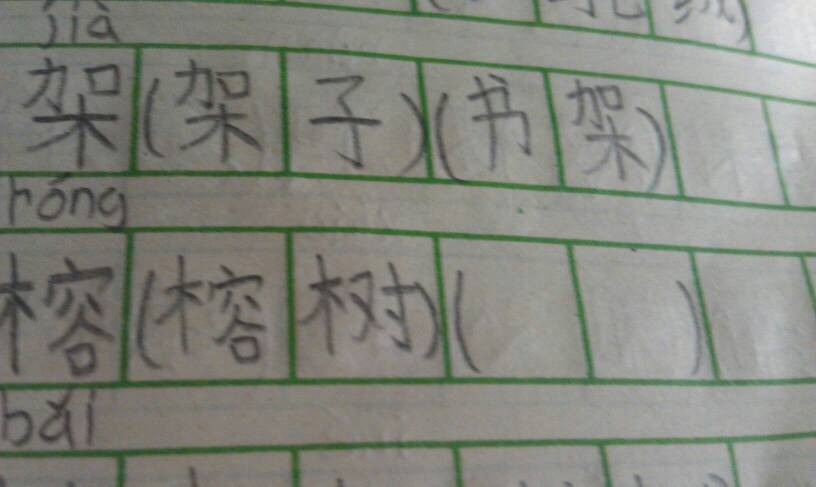 jià
架(架子)(书架)
róng
榕(榕树)(  )
bǎi